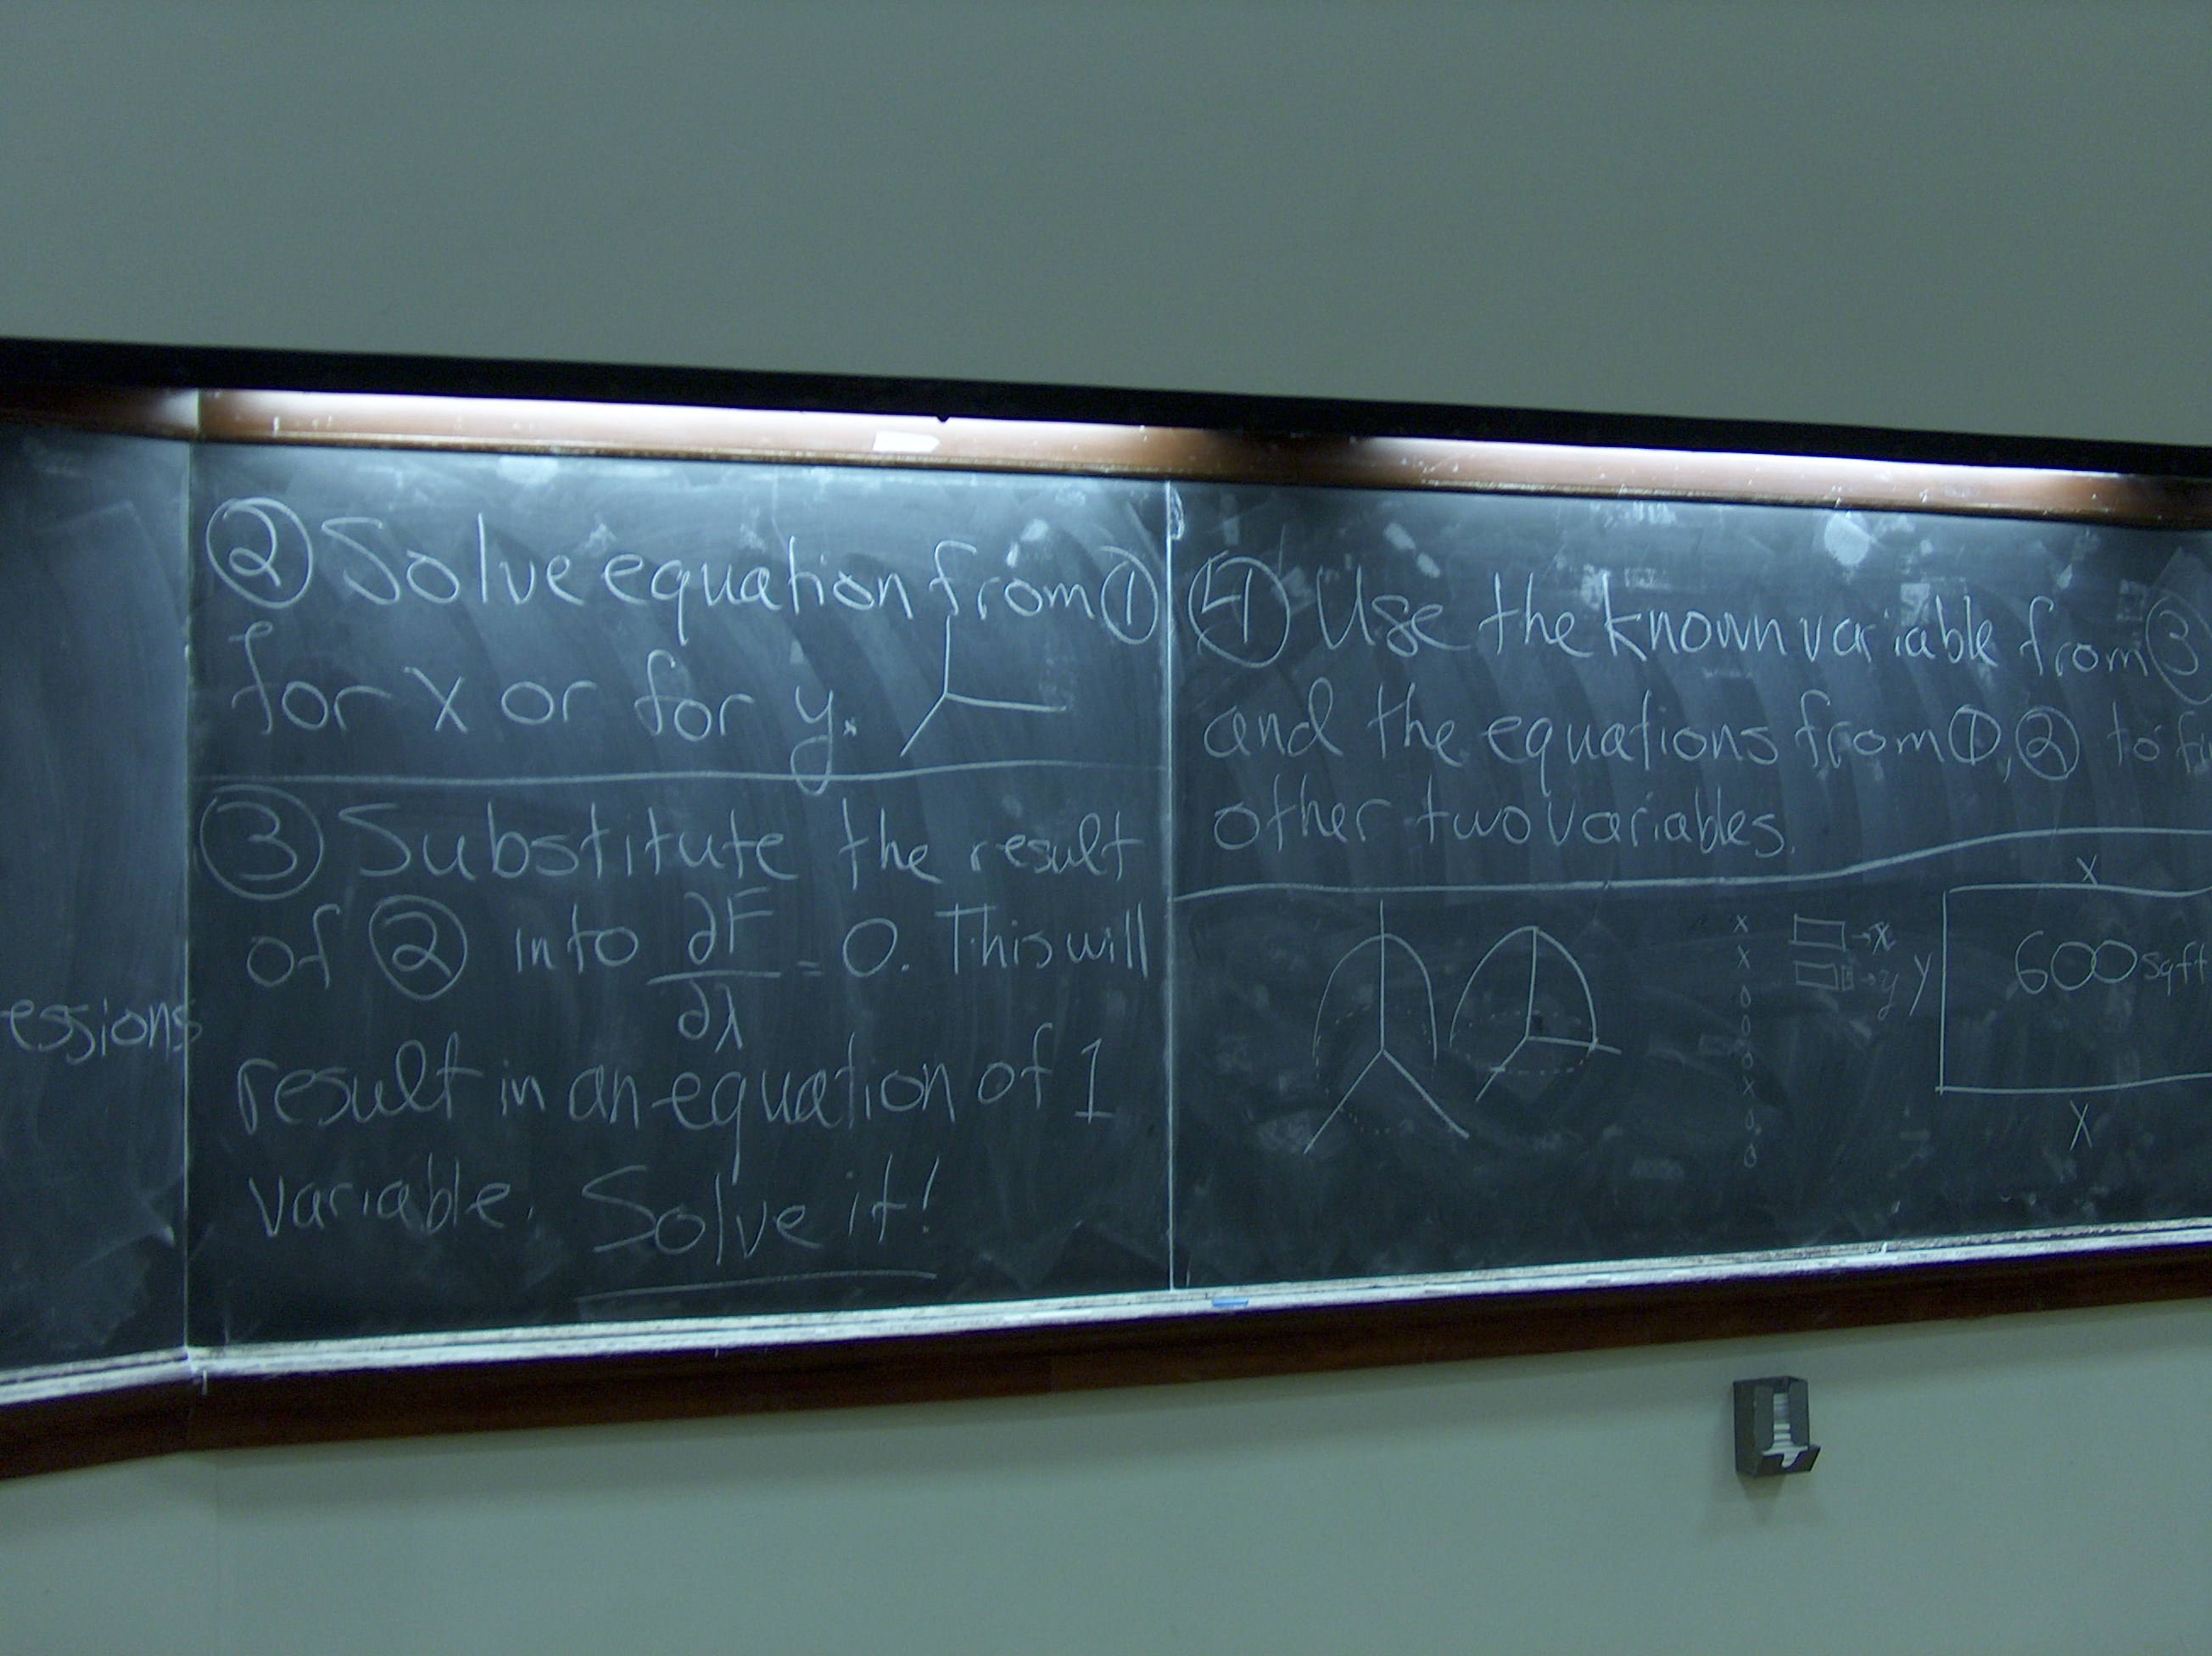 essions
② Solve equation from ①
for x or for y.
③ Substitute the result
of ② into ∂F/∂λ = 0. This will
result in an equation of 1
variable. Solve it!
④ Use the known variable from ③
and the equations from ①, ② to fi
other two variables.
x
x
0
0
0
x
0
0
→x
→y
x
y
600 sqft
x